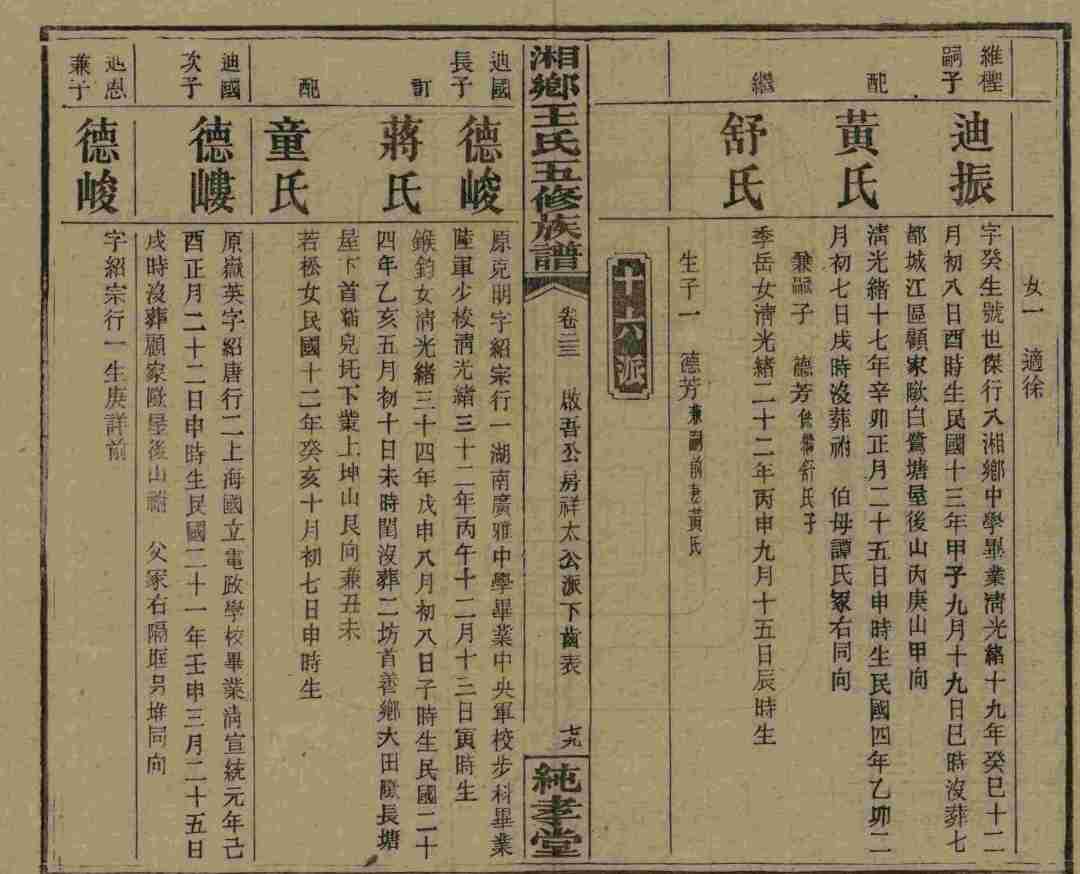 女一　適徐
維樫嗣子
迪振
字癸生號世傑行入湘鄉中學畢業淸光緒十九年癸巳十二
月初八日酉時生民國十三年甲子九月十九日巳時沒葬七
都城江區顧家歐白鷺塘屋後山丙庚山甲向
配
黃氏
淸光緒十七年辛卯正月二十五日申時生民國四年乙卯二
月初七日戌時沒葬祔　伯母譚氏冢右同向
兼嗣子　德芳係繼舒氏子
繼
舒氏
季岳女淸光緒二十二年丙申九月十五日辰時生
生子一　德芳兼嗣前妻黃氏
十六派
湘鄉王氏五修族譜
卷二三　啟吾公房祥太公派下齒表　七九
純孝堂
迪國長子
德峻
原克明字紹宗行一湖南廣雅中學畢業中央軍校步科畢業
陸軍少校淸光緒三十二年丙午十二月十三日寅時生
訂
蔣氏
鍭鈞女淸光緒三十四年戊申八月初八日子時生民國二十
四年乙亥五月初十日未時閨沒葬二坊首善鄉大田歐長塘
屋下首貓兒托下業上坤山艮向兼丑未
配
童氏
若松女民國十二年癸亥十月初七日申時生
迪國次子
德嶁
原嶽英字紹唐行二上海國立電政學校畢業淸宣統元年己
酉正月二十二日申時生民國二十一年壬申三月二十五日
戌時沒葬顧家歐屋後山祔　父冢右隔堆另堆同向
迪恩兼子
德峻
字紹宗行一生庚詳前